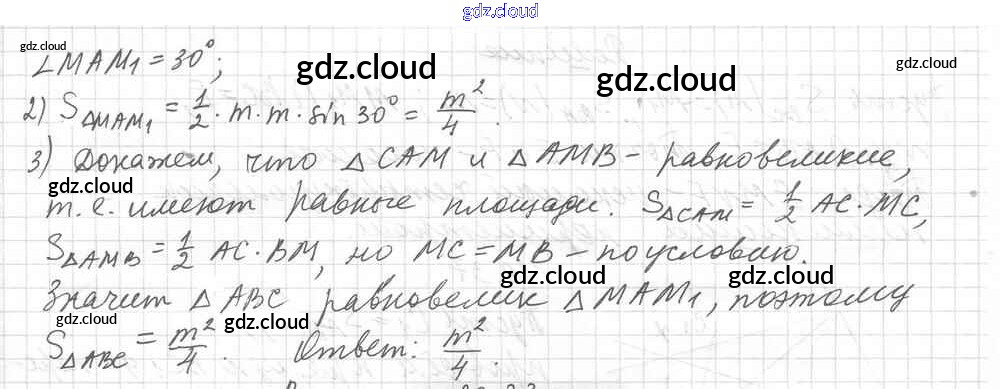 gdz.cloud
gdz.cloud
∠MAM₁ = 30°;
gdz.cloud
gdz.cloud
gdz.cloud
2) S△MAM₁ = 1/2 · m · m · sin 30° = m²/4.
3) Докажем, что △CAM и △AMB – равновеликие,
gdz.cloud
т.е. имеют равные площади. S△CAM = 1/2 AC · MC,
gdz.cloud
S△AMB = 1/2 AC · BM, но MC = MB – по условию.
gdz.cloud
gdz.cloud
Значит △ABC равновелик △MAM₁, поэтому
gdz.cloud
gdz.cloud
S△ABC = m²/4. Ответ: m²/4.